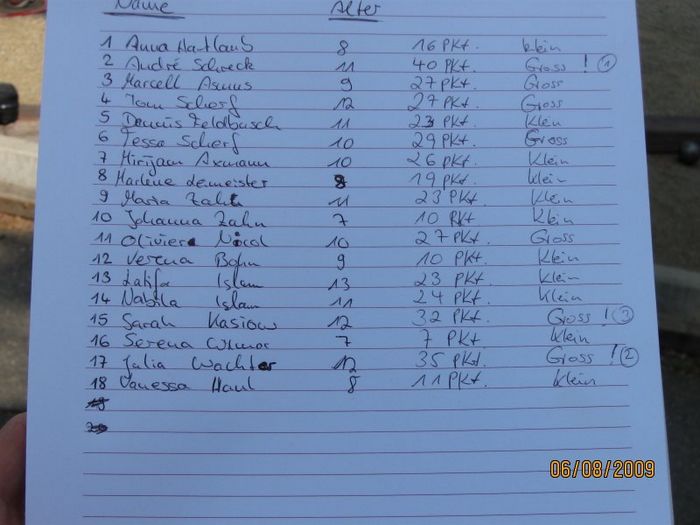 Name Alter
1 Anna Hartlaub 8 16 PKt. Klein
2 André Schreck 11 40 PKt. Gross ! 1
3 Marcell Asmus 9 27 PKt. Gross
4 Tom Scherf 12 27 PKt. Gross
5 Dennis Feldbusch 11 23 PKt. Klein
6 Tessa Scherf 10 29 PKt. Gross
7 Mirijam Axmann 10 26 PKt. Klein
8 Marlene 8 19 PKt. Klein
9 Maria Zahn 11 23 PKt. Klein
10 Johanna Zahn 7 10 PKt Klein
11 Nicol 10 27 PKt. Gross
12 Verena Bohn 9 10 PKt. Klein
13 Latifa Islam 13 23 PKt. Klein
14 Nabila Islam 11 24 PKt. Klein
15 Sarah Kasiow 12 32 PKt. Gross ! 3
16 Serena 7 7 PKt. Klein
17 Julia Wachter 12 35 PKt. Gross ! 2
18 Vanessa Haul 8 11 PKt. Klein
06/08/2009